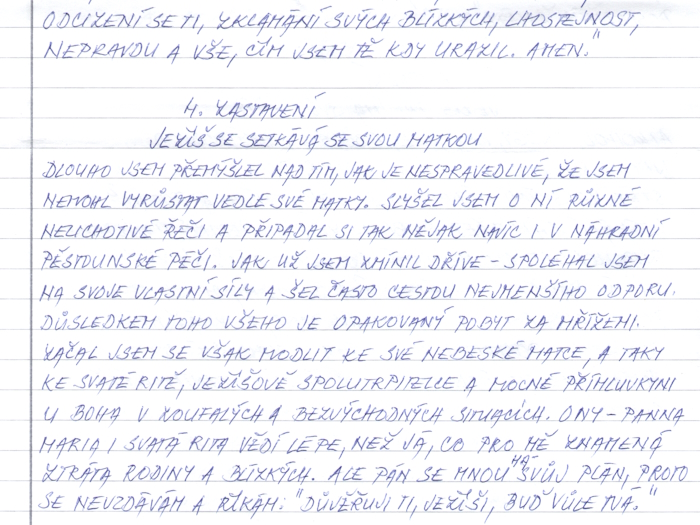 ODCIZENÍ SE TI, ZKLAMÁNÍ SVÝCH BLÍZKÝCH, LHOSTEJNOST,
NEPRAVDU A VŠE, ČÍM JSEM TĚ KDY URAZIL. AMEN."
4. ZASTAVENÍ
JEŽÍŠ SE SETKÁVÁ SE SVOU MATKOU
DLOUHO JSEM PŘEMÝŠLEL NAD TÍM, JAK JE NESPRAVEDLIVÉ, ŽE JSEM
NEMOHL VYRŮSTAT VEDLE SVÉ MATKY. SLYŠEL JSEM O NÍ RŮZNÉ
NELICHOTIVÉ ŘEČI A PŘIPADAL SI TAK NĚJAK NAVÍC I V NÁHRADNÍ
PĚSTOUNSKÉ PÉČI. JAK UŽ JSEM ZMÍNIL DŘÍVE - SPOLÉHAL JSEM
NA SVOJE VLASTNÍ SÍLY A ŠEL ČASTO CESTOU NEJMENŠÍHO ODPORU.
DŮSLEDKEM TOHO VŠEHO JE OPAKOVANÝ POBYT ZA MŘÍŽEMI.
ZAČAL JSEM SE VŠAK MODLIT KE SVÉ NEBESKÉ MATCE, A TAKY
KE SVATÉ RITĚ, JEŽÍŠOVĚ SPOLUTRPITELCE A MOCNÉ PŘÍMLUVKYNI
U BOHA V ZOUFALÝCH A BEZVÝCHODNÝCH SITUACÍCH. ONY - PANNA
MARIA I SVATÁ RITA VĚDÍ LÉPE, NEŽ JÁ, CO PRO MĚ ZNAMENÁ
ZTRÁTA RODINY A BLÍZKÝCH. ALE PÁN SE MNOU MÁ SVŮJ PLÁN, PROTO
SE NEVZDÁVÁM A ŘÍKÁM: "DŮVĚŘUJI TI, JEŽÍŠI, BUĎ VŮLE TVÁ."